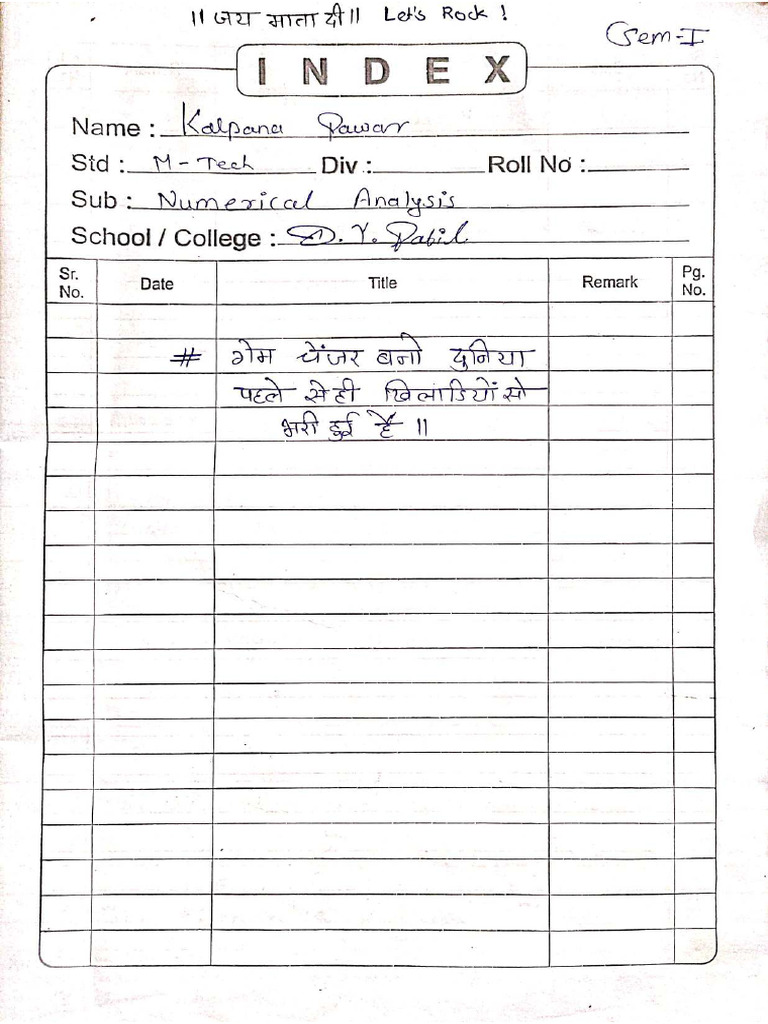 ॥ जय माता दी॥ Let's Rock !
Sem-I
INDEX
Name : Kalpana Pawar
Std : M-Tech Div : Roll No :
Sub : Numerical Analysis
School / College : D. Y. Patil
Sr. No. Date Title Remark Pg. No.
# गेम चेंजर बनो दुनिया
पहले से ही खिलाडियों सो
भरी हुई है ॥